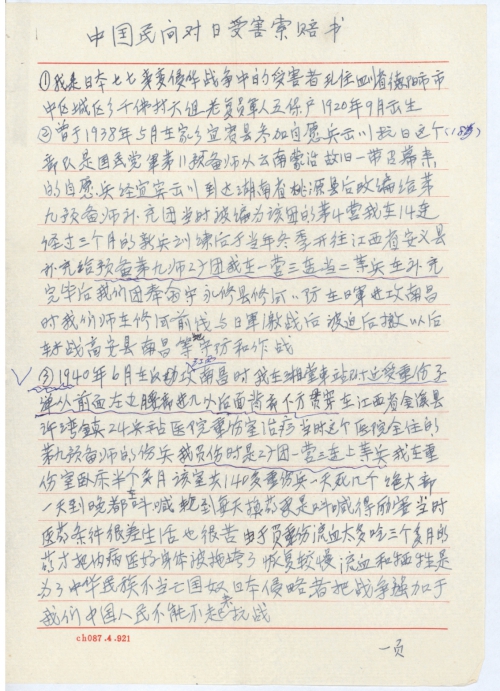 中国民间对日受害索赔书
①我是日本七七事变侵华战争中的受害者现住四川省德阳市市
中区城区乡千佛村六组老复员军人五保户1920年9月出生
②曾于1938年5月在家乡宜宾县参加自愿兵出川抗日这个(18岁)
部队是国民党军第11预备师从云南蒙自故旧一带召募来
的自愿兵经宜宾出川到达湖南省桃源县后改编给第
九预备师补充团当时被编为该团的第4营我在14连
经过三个月的新兵训练后于当年冬季开往江西省安义县
补充给预备第九师27团我在一营三连当二等兵在补充
完毕后我们团奉命守永修县修河 防在日军进攻南昌
时我们师在修河前线与日军激战后被迫后撤以后
转战高安县南昌等地守防和作战
③1940年6月在反攻南昌时我在 车站附近受重伤子
弹从前面左边 进九从后面背 下方贯穿在江西省金溪县
浒湾镇24兵站医院重伤室治疗当时这个医院全住的
第九预备师的伤兵我负伤时是27团一营三连上等兵我在重
伤室卧床半个多月该室共140多重伤兵一天死几个 绝大部
一天到晚都叫喊 到每天换药更是叫喊得厉害当时
医药条件很差生活也很苦由于负重伤流血太多吃三个多月的
药才把伤病医好身体被拖垮了恢复较慢流血和牺牲是
为了中华民族不当亡国奴日本侵略者把战争强加于
我们中国人民不能不起来抗战
ch087.4.921
一页